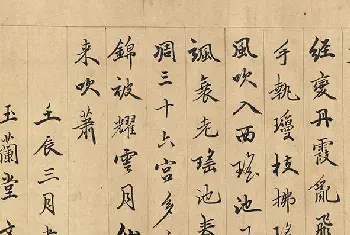 經變丹霞亂飛
手執瓊枝拂瑤
風吹入西瑤池
颯衰老瑤池春
凋三十六宮多
錦被耀雲月
来吹蕭
壬辰三月
玉蘭堂